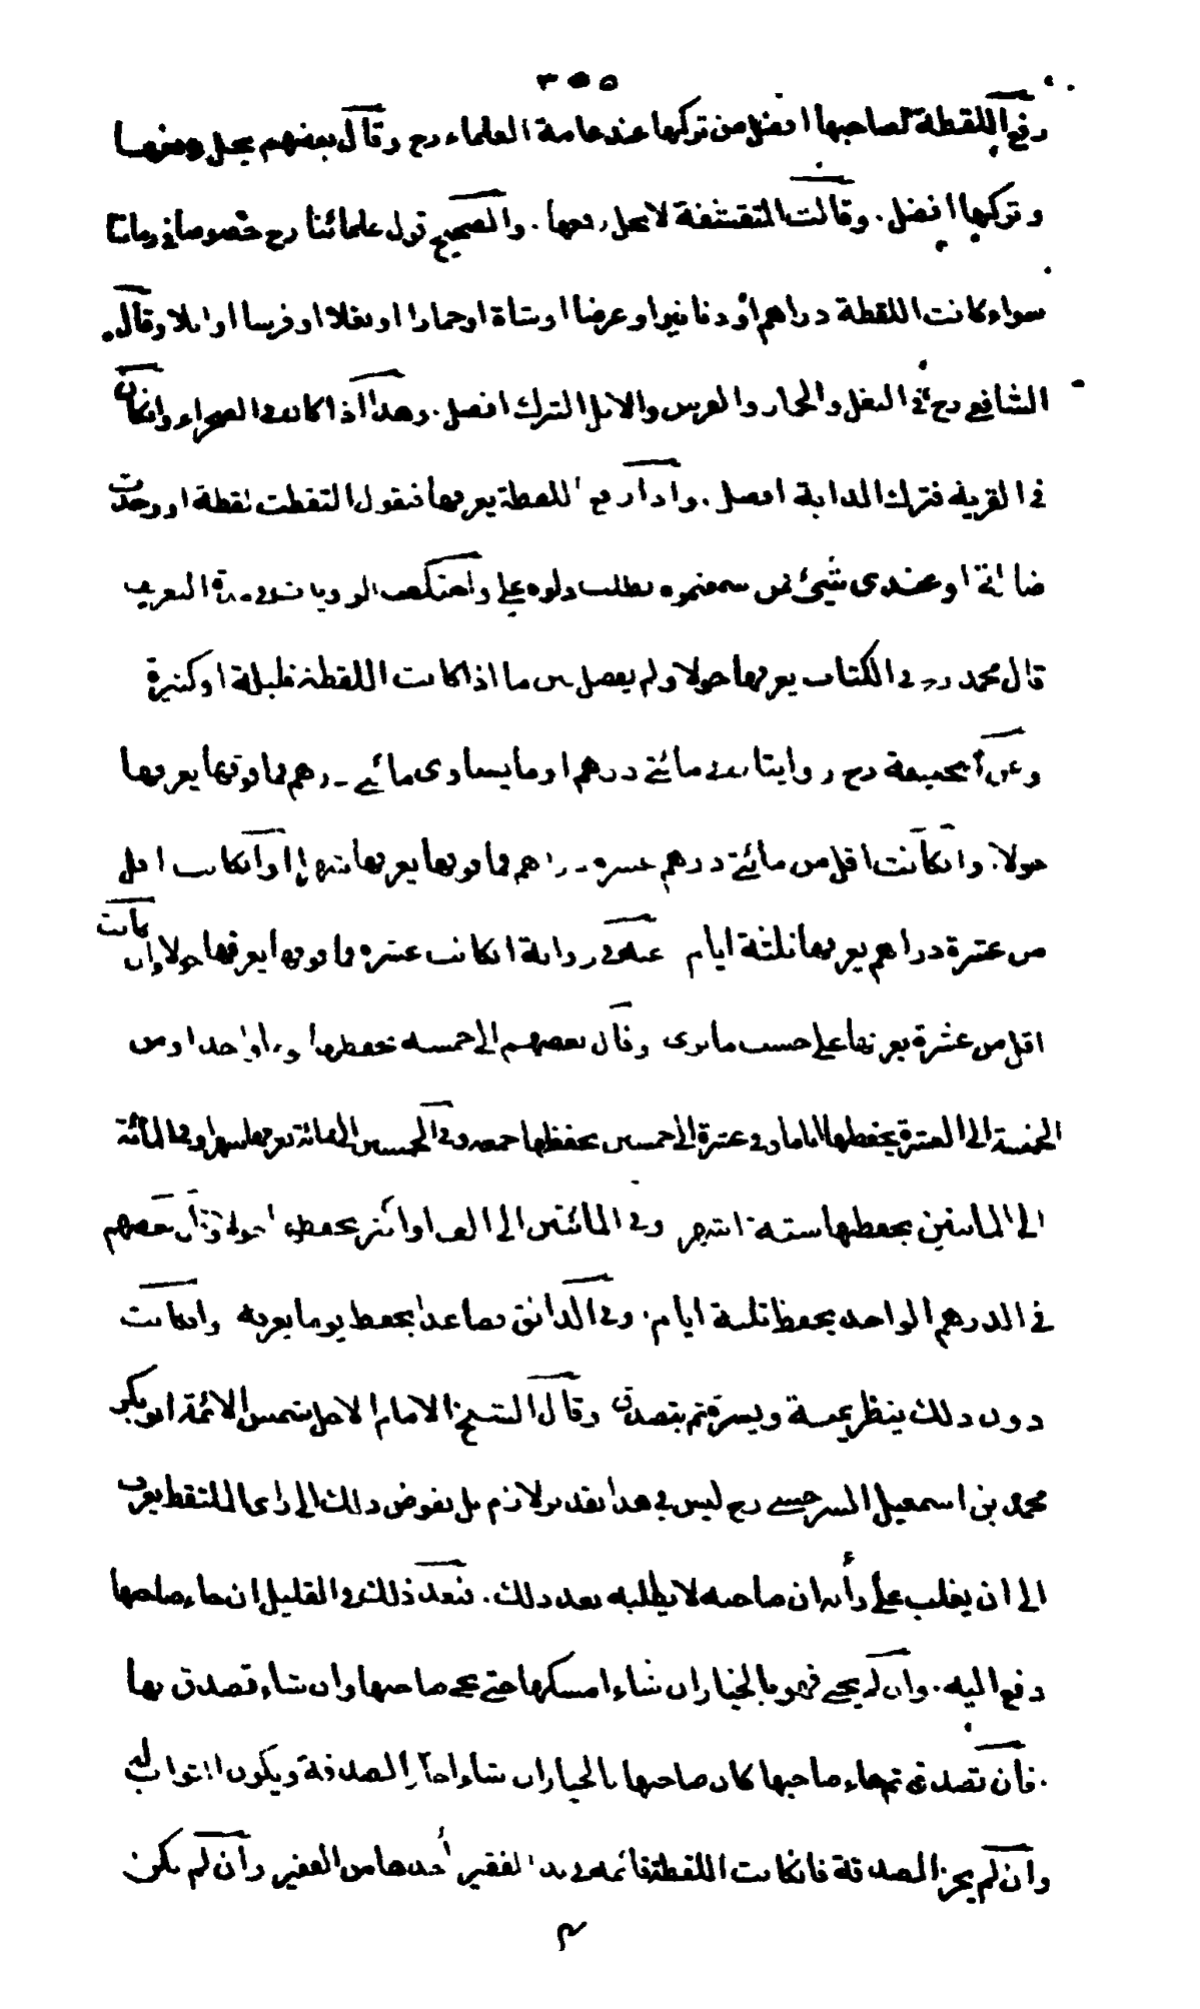 ٣٥٥
رفع اللقطة لصاحبها افضل من تركها عند عامة العلماء رح وقال بعضهم يحل رفعها
وتركها افضل. وقالت المتقشفة لا يحل رفعها. والصحيح قول علمائنا رح خصوصا في زماننا
سواء كانت اللقطة دراهم او دنانير او عرضا او شاة او حمارا او بغلا او فرسا او ابلا وقال
الشافعي رح في البغل والحمار والفرس والابل الترك افضل. وهذا اذا كانت في الصحراء وانكان
في القرية فترك الدابة افضل. واذا رفع اللقطة يعرفها فيقول التقطت لقطة او وجدت
ضالة او عندي شيئ فمن سمعتموه يطلب دلوه علي واختلفت الروايات في مدة التعريف
قال محمد رح في الكتاب يعرفها حولا ولم يفصل بين ما اذا كانت اللقطة قليلة او كثيرة
وعن أبيحنيفة رح روايتان في مائتي درهم او ما يساوي مائتي درهم فما فوقها يعرفها
حولا. وانكانت اقل من مائتي درهم عشرة دراهم فما فوقها يعرفها شهرا وانكانت اقل
من عشرة دراهم يعرفها ثلثة ايام وعنه في رواية انكانت عشرة فما فوقها يعرفها حولا وان كانت
اقل من عشرة يعرفها على حسب ما يرى وقال بعضهم الى خمسة يحفظها يوما واحدا ومن
الخمسة الى العشرة يحفظها اياما وفي عشرة الى خمسين يحفظها جمعة وفي الخمسين الى المائة يعرفها شهرا وفي المائة
الى المائتين يحفظها ستة اشهر وفي المائتين الى الف او اكثر يحفظها حولا وقال بعضهم
في الدرهم الواحد يحفظ ثلثة ايام. وفي الدانق فصاعدا يحفظ يوما يعرفه وانكانت
دون ذلك ينظر يمنة ويسرة ثم يتصدق وقال الشيخ الامام الاجل شمس الائمة ابو بكر
محمد بن اسمعيل السرخسي رح ليس في هذا تقدير لازم بل يفوض ذلك الى راى الملتقط يعرف
الى ان يغلب على رأيه ان صاحبه لا يطلبه بعد ذلك. فبعد ذلك في القليل ان جاء صاحبها
دفع اليه. وان لم يجئ فهو بالخيار ان شاء امسكها حتى يجئ صاحبها وان شاء تصدق بها
فان تصدق ثم جاء صاحبها كان صاحبها بالخيار ان شاء اجاز الصدقة ويكون الثواب له
وان لم يجز الصدقة فانكانت اللقطة قائمة في يد الفقير أخذها من الفقير وان لم يكن